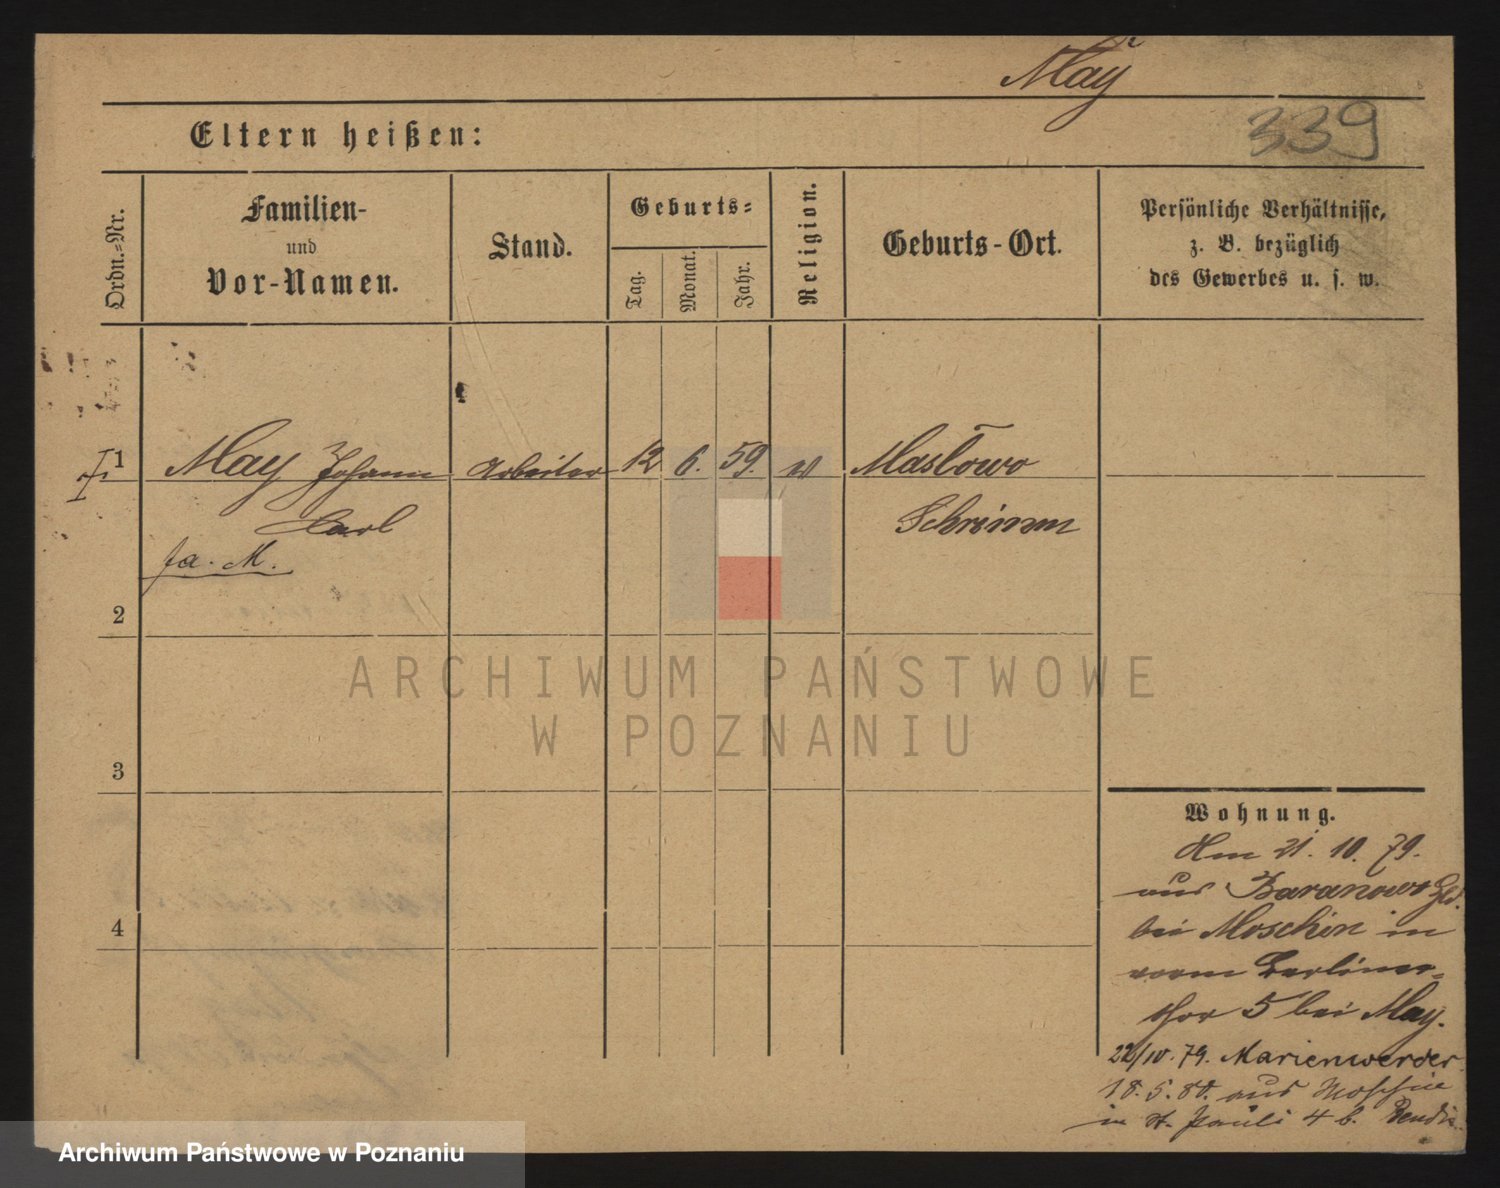 May
339
Eltern heißen:
Ordn.-Nr.
Familien-
und
Vor-Namen.
Stand.
Geburts-
Tag.
Monat.
Jahr.
Religion.
Geburts-Ort.
Persönliche Verhältnisse,
z. B. bezüglich
des Gewerbes u. s. w.
1 May Johann Arbeiter 12 6. 59. Maslowo
Carl Schrimm
fa. M.
2
3
4
ARCHIWUM PAŃSTWOWE
W POZNANIU
Wohnung.
Am 21. 10. 79.
aus Baranowo
bei Moschin in
vorm Berliner-
thor 5 bei May.
22/10. 79. Marienwerder
18. 5. 80. aus Moschin
in St. Pauli 4 b.
Archiwum Państwowe w Poznaniu